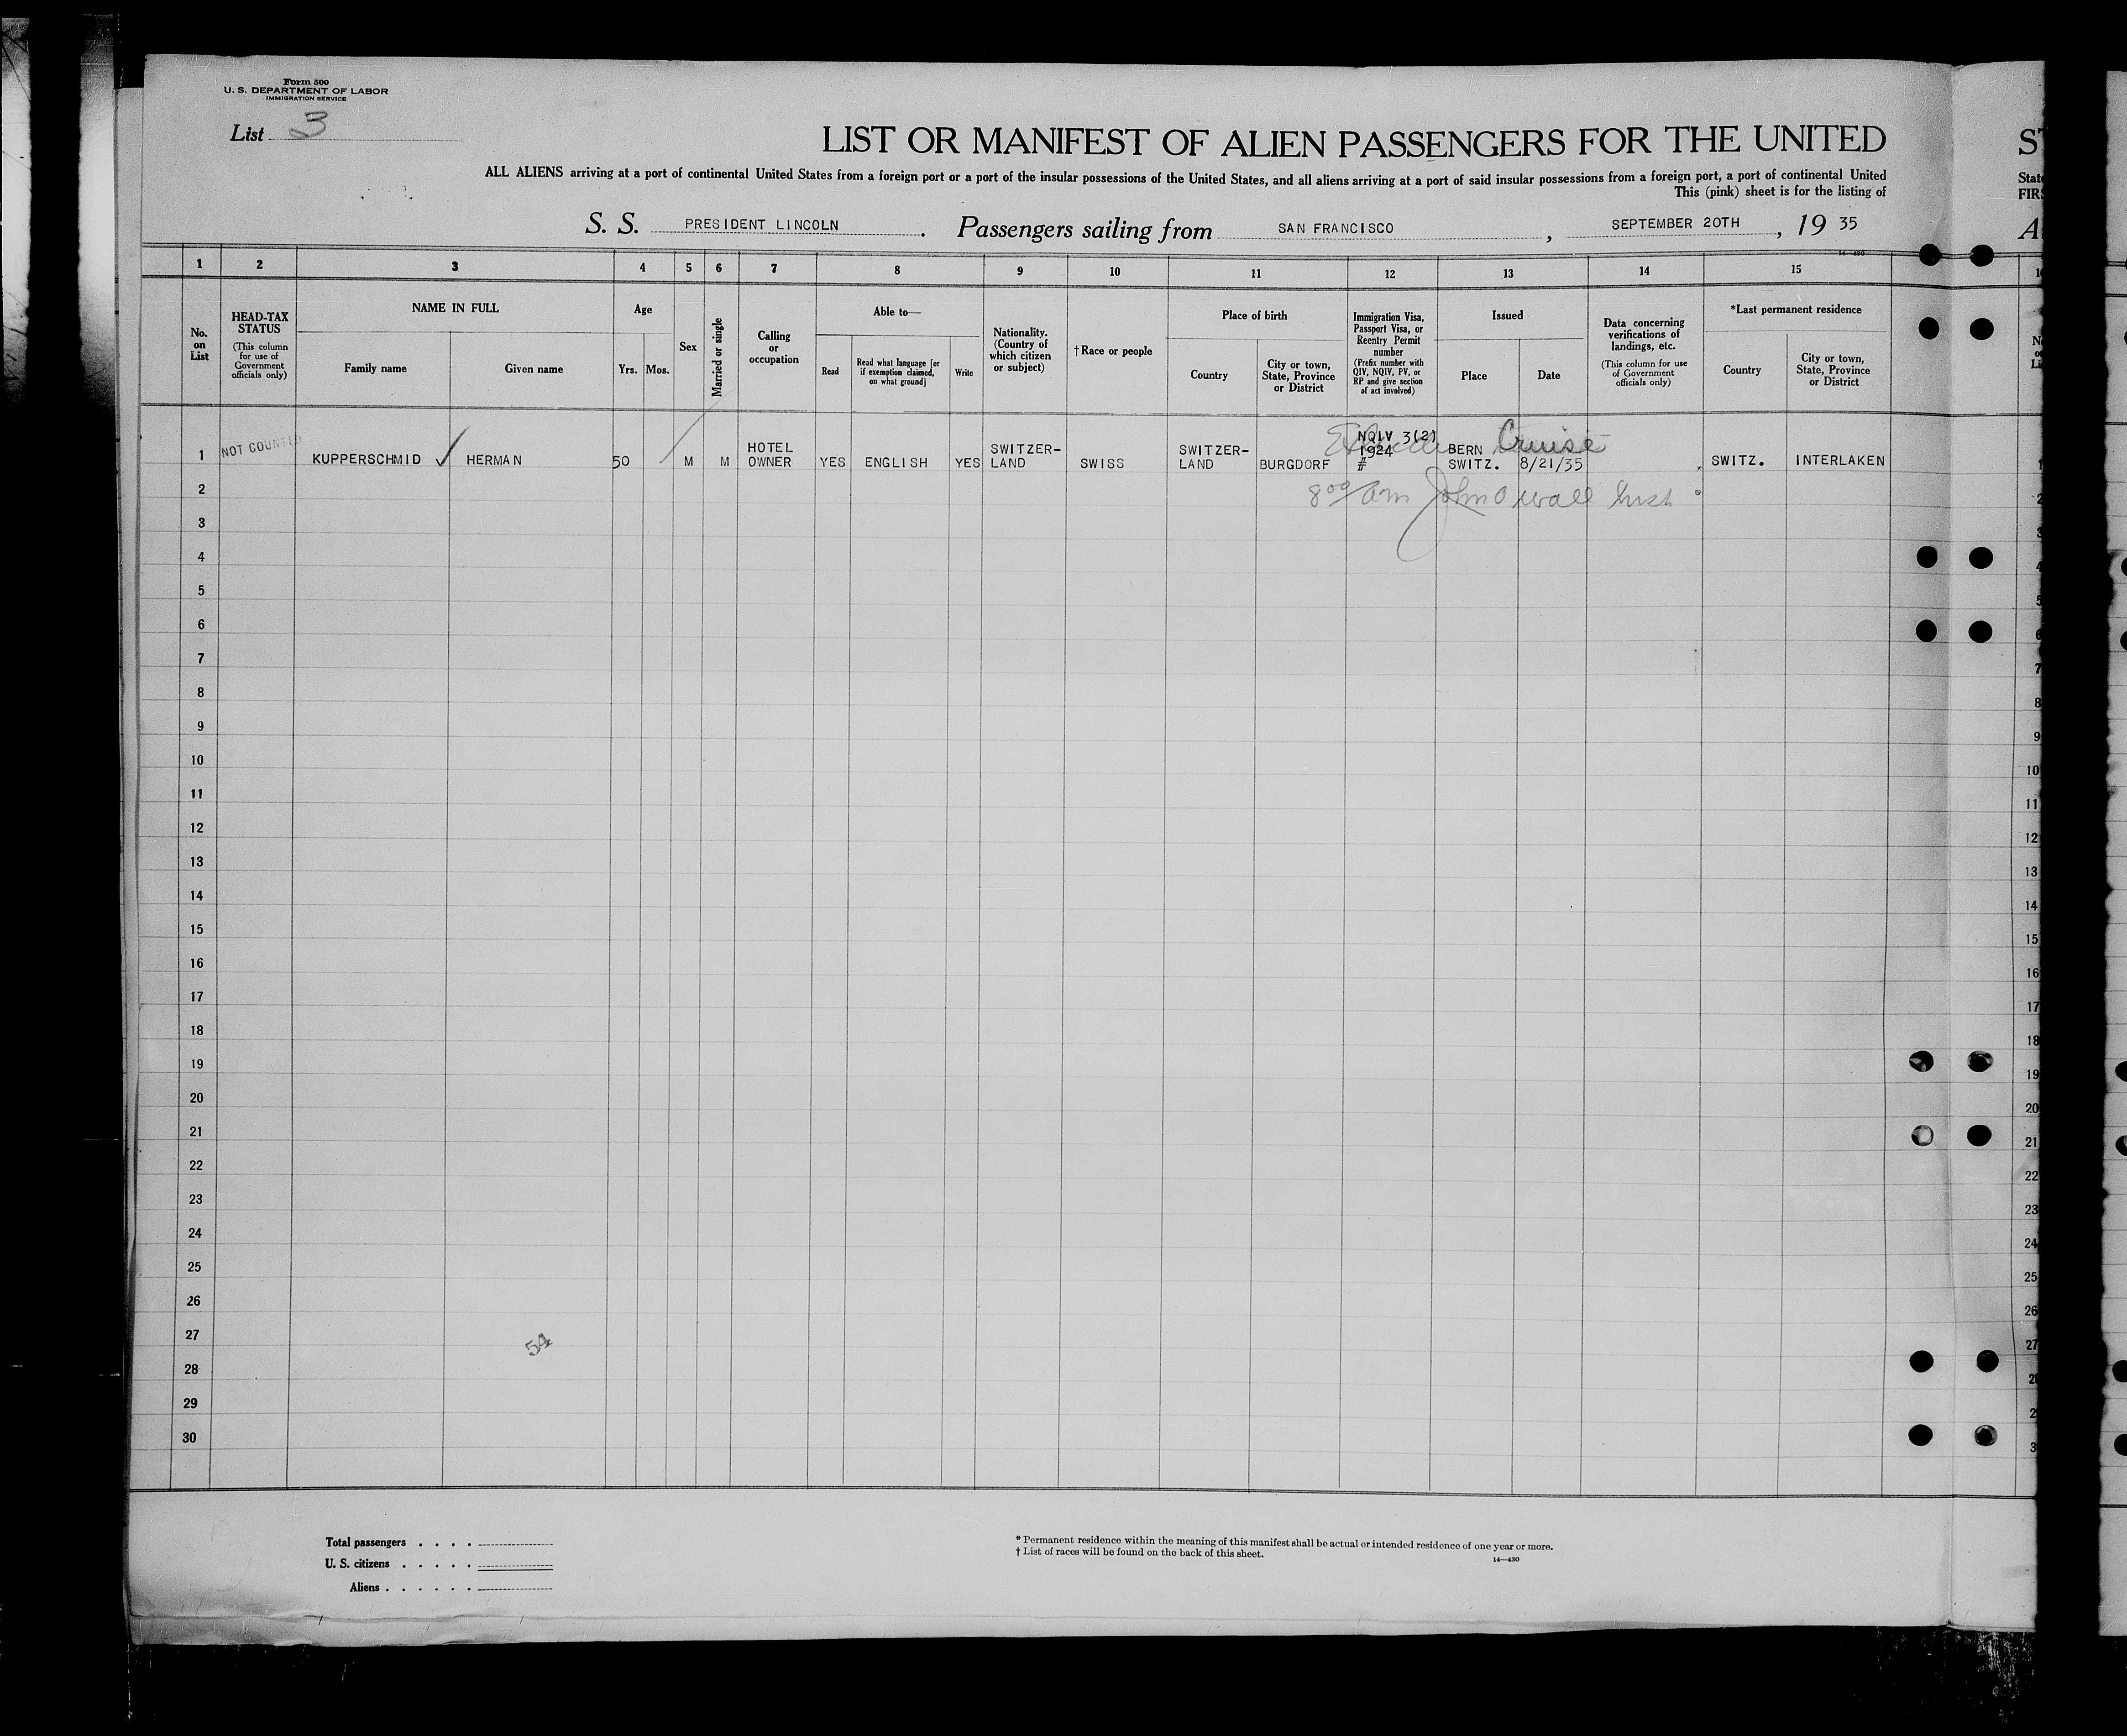 Form 500
U. S. DEPARTMENT OF LABOR
IMMIGRATION SERVICE
List 3
LIST OR MANIFEST OF ALIEN PASSENGERS FOR THE UNITED
ALL ALIENS arriving at a port of continental United States from a foreign port or a port of the insular possessions of the United States, and all aliens arriving at a port of said insular possessions from a foreign port, a port of continental United
This (pink) sheet is for the listing of
S. S. PRESIDENT LINCOLN. Passengers sailing from SAN FRANCISCO, SEPTEMBER 20TH, 19 35
14—430
1 2 3 4 5 6 7 8 9 10 11 12 13 14 15
No. on List
HEAD-TAX STATUS
(This column for use of Government officials only)
NAME IN FULL
Family name
Given name
Age
Yrs. Mos.
Sex
Married or single
Calling or occupation
Able to—
Read
Read what language [or if exemption claimed, on what ground]
Write
Nationality. (Country of which citizen or subject)
†Race or people
Place of birth
Country
City or town, State, Province or District
Immigration Visa, Passport Visa, or Reentry Permit number
(Prefix number with QIV, NQIV, PV, or RP and give section of act involved)
Issued
Place
Date
Data concerning verifications of landings, etc.
(This column for use of Government officials only)
*Last permanent residence
Country
City or town, State, Province or District
1 NOT COUNTED KUPPERSCHMID ✓ HERMAN 50 M M HOTEL OWNER YES ENGLISH YES SWITZER-LAND SWISS SWITZER-LAND BURGDORF NQIV 3(2) 1924 # BERN SWITZ. 8/21/35 Cruise SWITZ. INTERLAKEN
2 8 00 am John O Wall
3
4
5
6
7
8
9
10
11
12
13
14
15
16
17
18
19
20
21
22
23
24
25
26
27
54
28
29
30
Total passengers
U. S. citizens
Aliens
* Permanent residence within the meaning of this manifest shall be actual or intended residence of one year or more.
† List of races will be found on the back of this sheet.
14—430